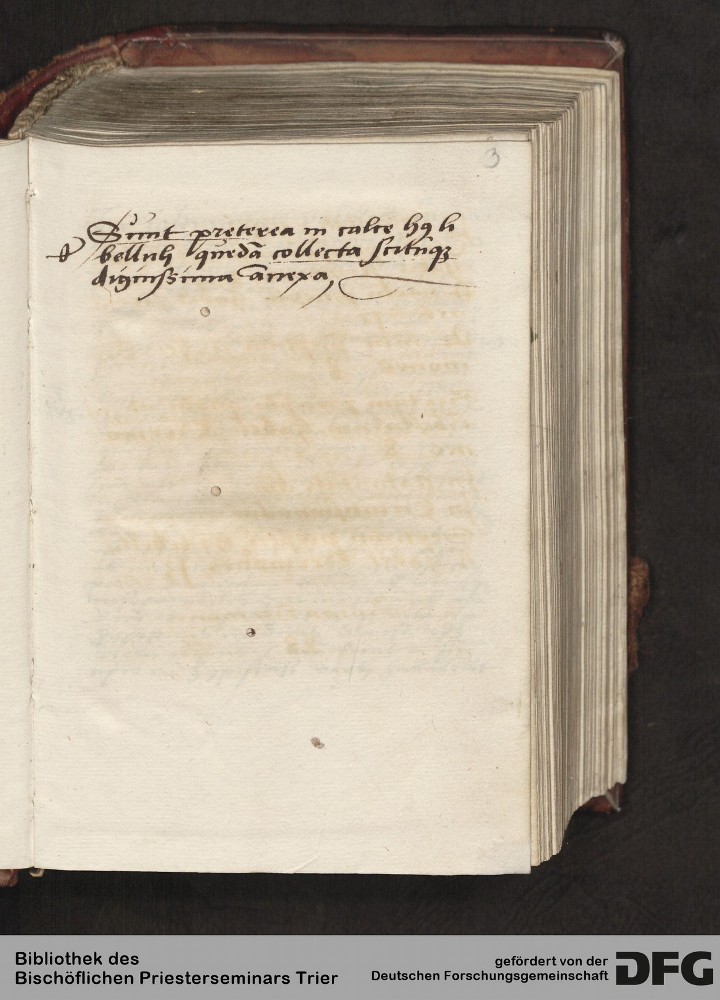 3
Sunt preterea in calce hꝰ li
belluli quedā collecta scituq́ꝫ
dignissima annexa,
Bibliothek des
Bischöflichen Priesterseminars Trier
gefördert von der
Deutschen Forschungsgemeinschaft
DFG